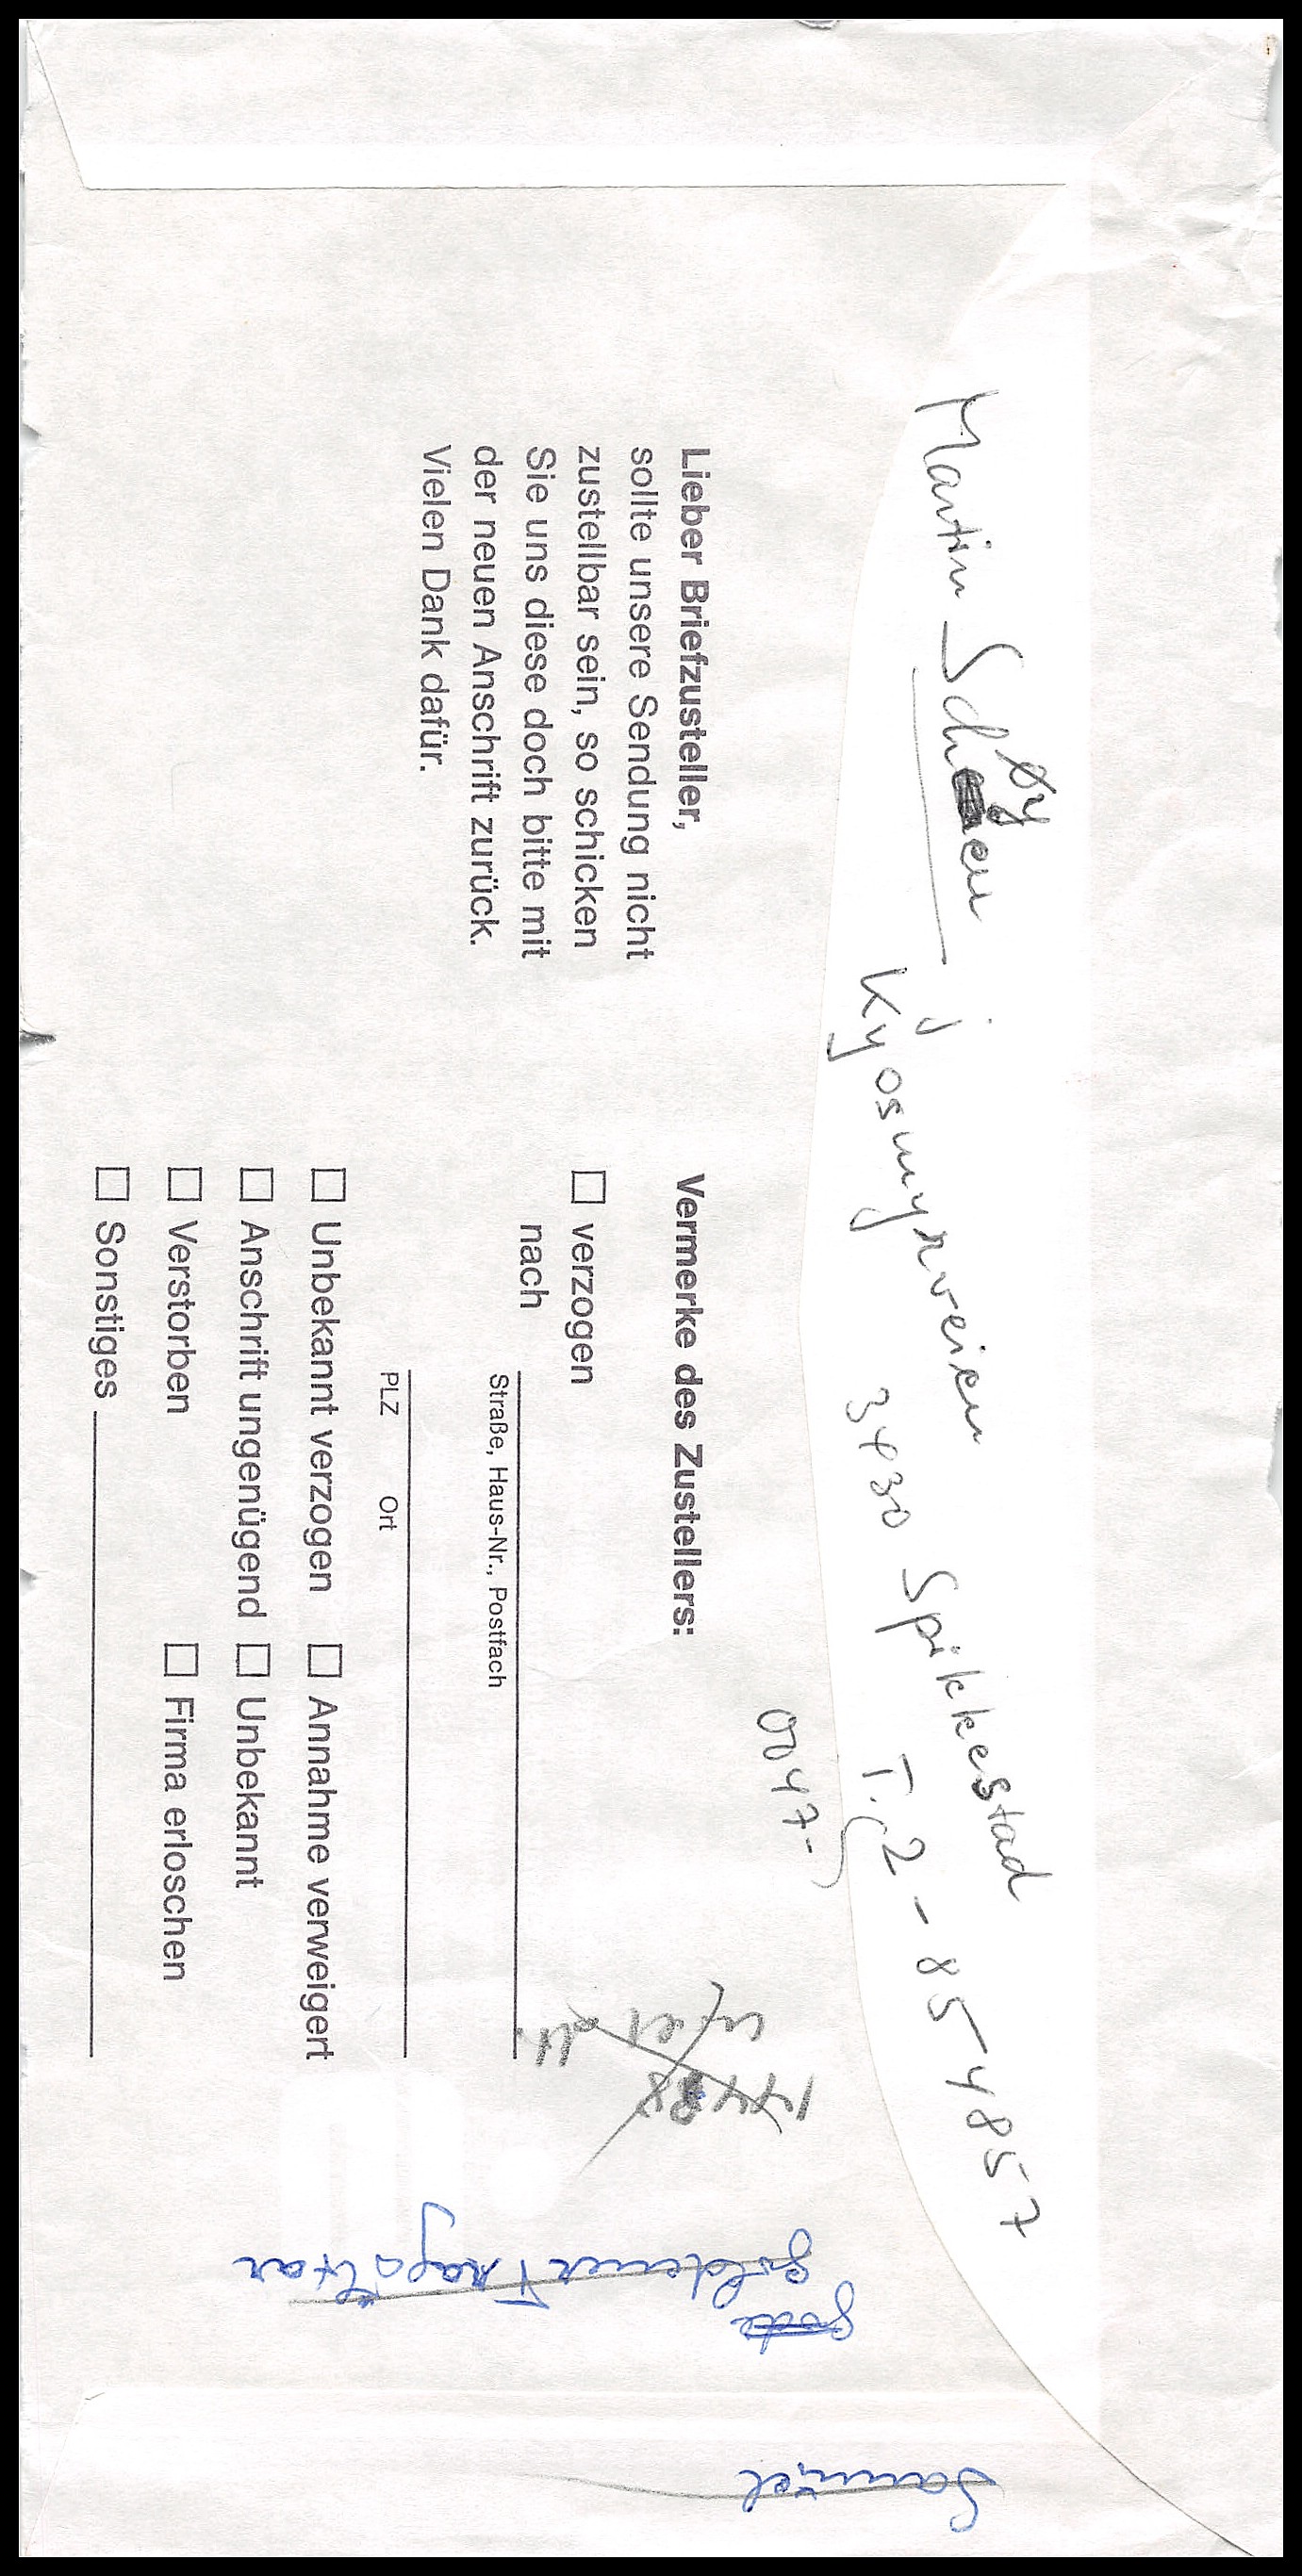 Martin Schøyen
Kyosmyrveien
j
3430 Spikkestad
T. (2-854857
0047-)
Lieber Briefzusteller,
sollte unsere Sendung nicht
zustellbar sein, so schicken
Sie uns diese doch bitte mit
der neuen Anschrift zurück.
Vielen Dank dafür.
Vermerke des Zustellers:
☐ verzogen
nach
Straße, Haus-Nr., Postfach
PLZ Ort
☐ Unbekannt verzogen ☐ Annahme verweigert
☐ Anschrift ungenügend ☐ Unbekannt
☐ Verstorben ☐ Firma erloschen
☐ Sonstiges
goldener Tragaltar
Samuel